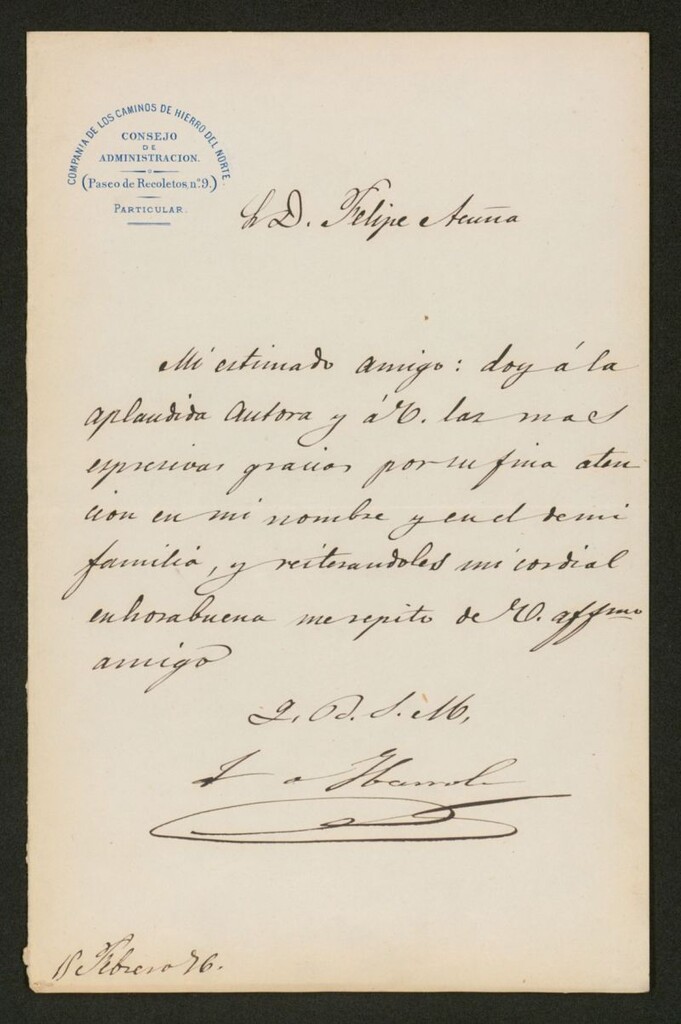 COMPAÑIA DE LOS CAMINOS DE HIERRO DEL NORTE.
CONSEJO
DE
ADMINISTRACION.
(Paseo de Recoletos, nº 9.)
PARTICULAR.
D. Felipe Acuña
Mi estimado amigo: doy á la
aplaudida Autora y á V. las mas
espresivas gracias por su fina aten
cion en mi nombre y en el de mi
familia, y reiterandoles mi cordial
enhorabuena me repito de V. affmo
amigo
Q. B. S. M.
Ibarrola
Febrero 76.